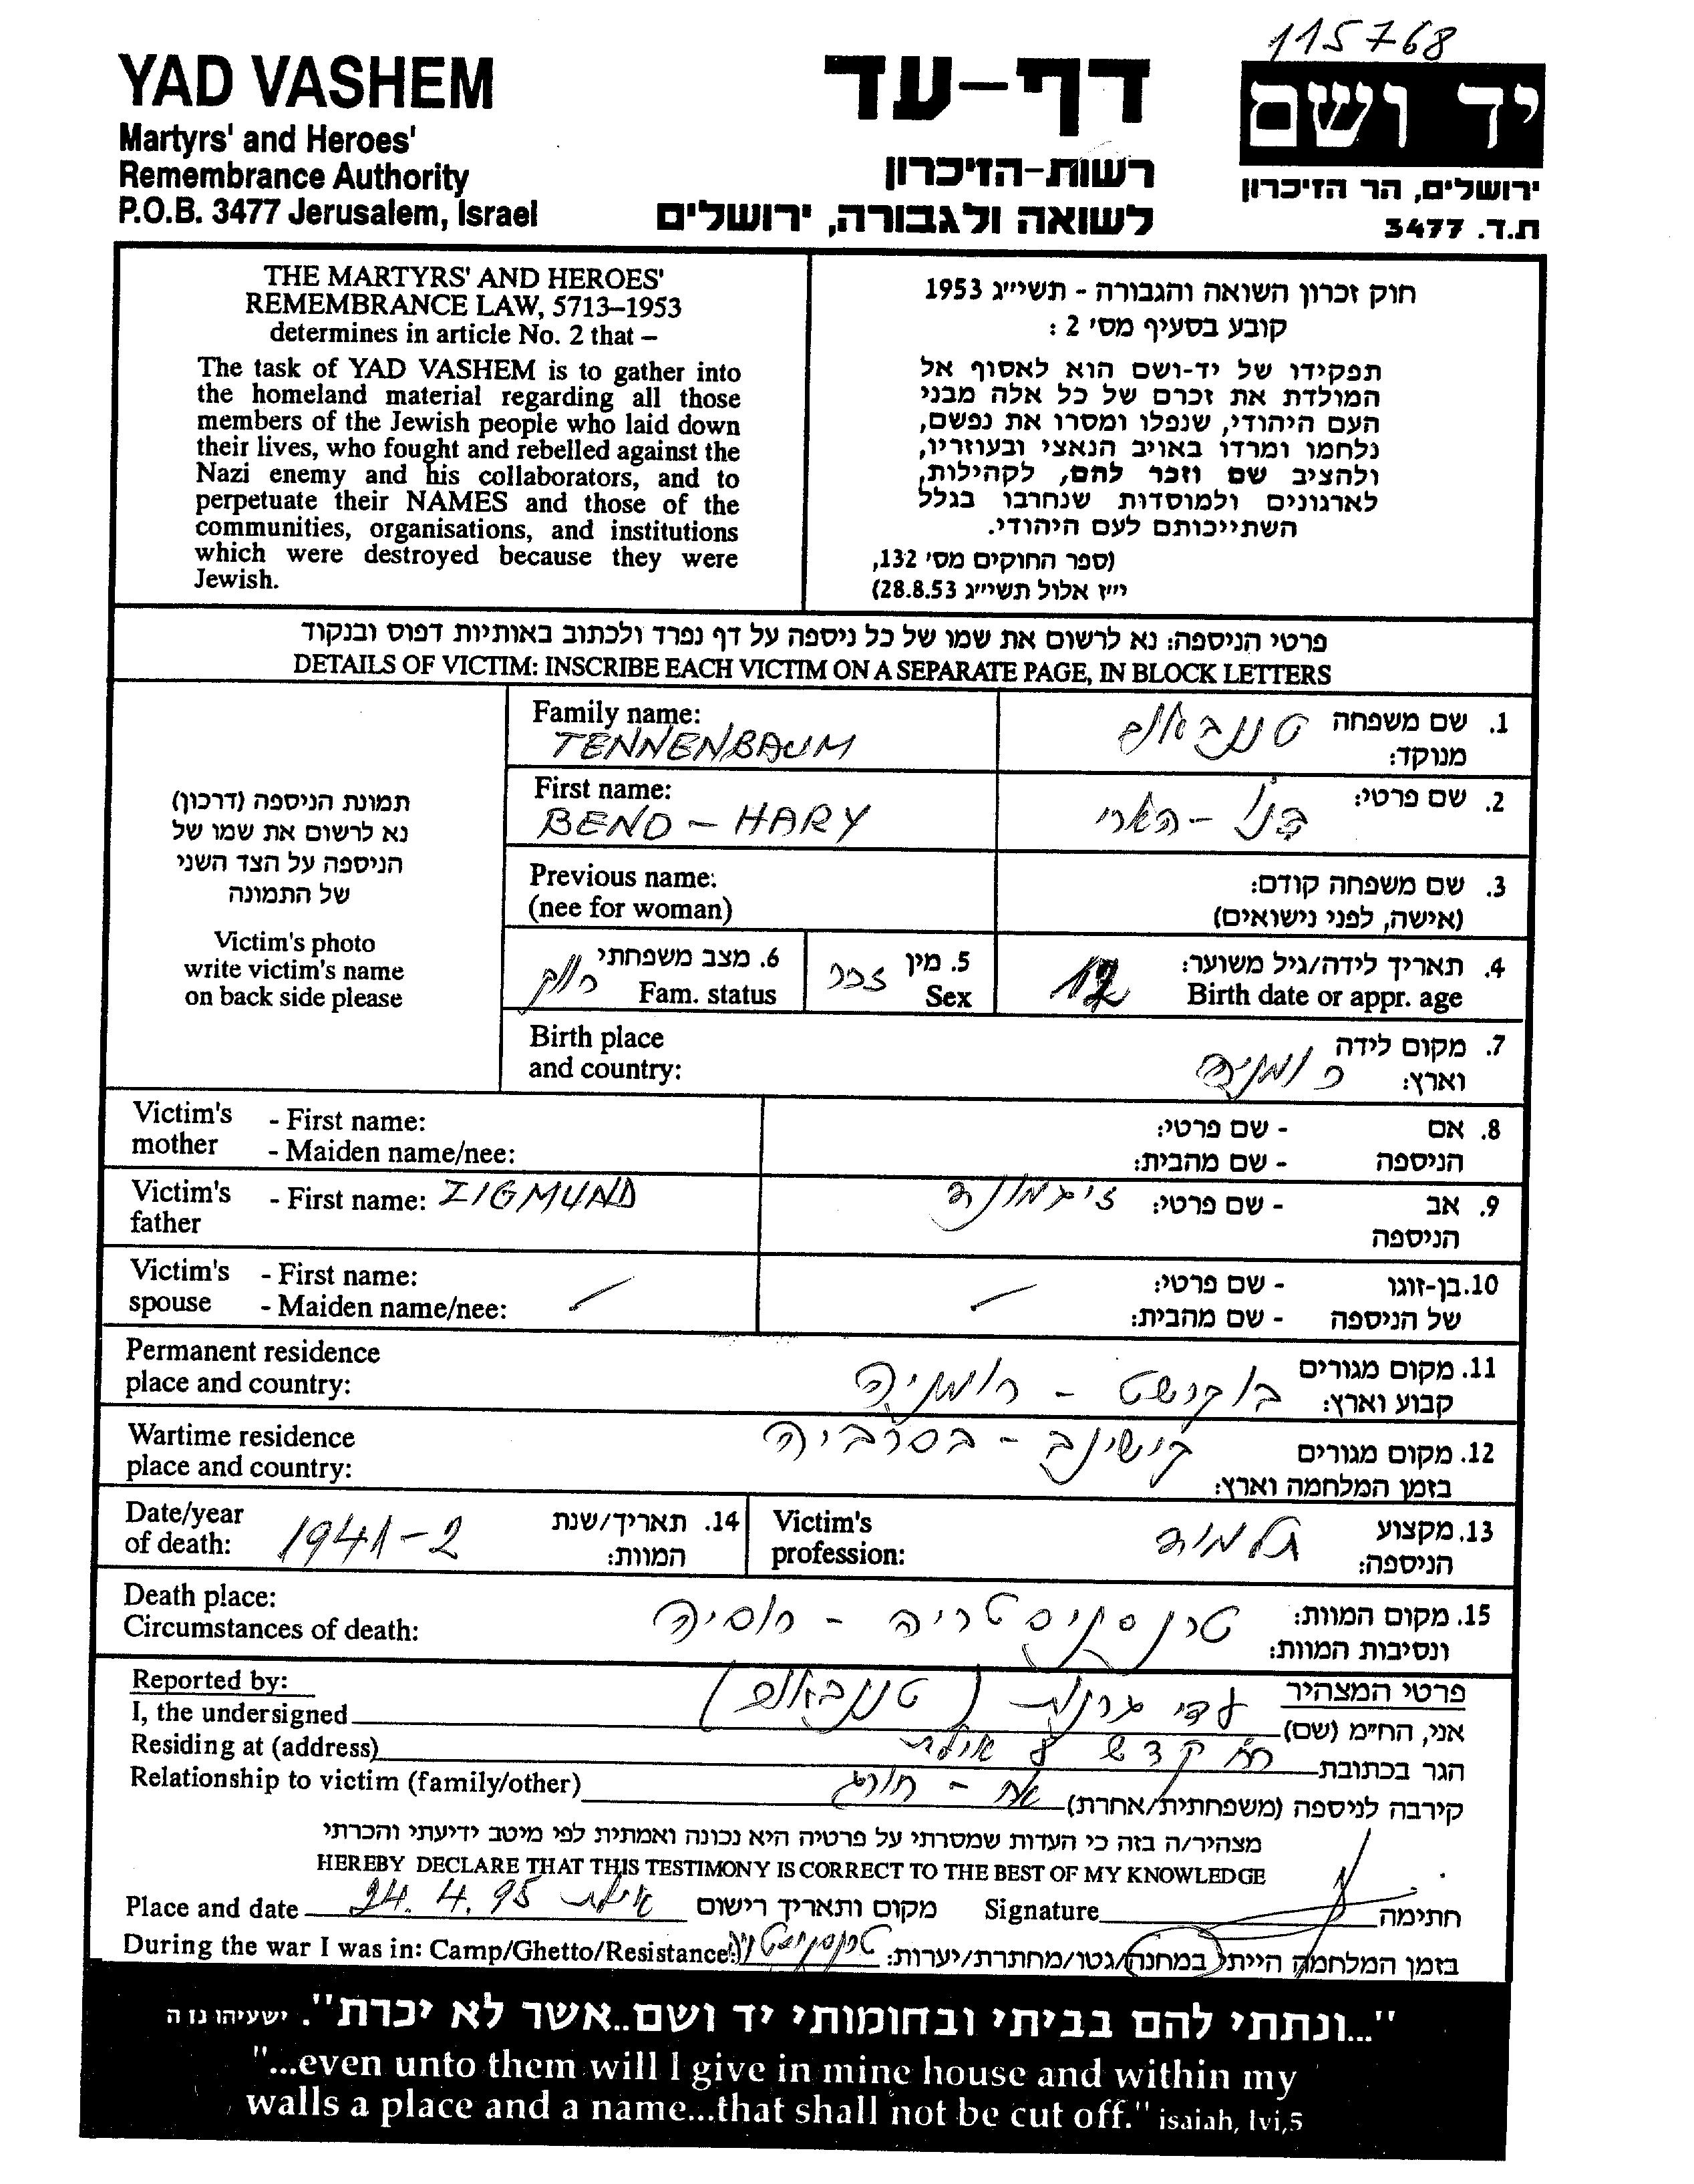 115768
YAD VASHEM
Martyrs' and Heroes'
Remembrance Authority
P.O.B. 3477 Jerusalem, Israel
דף-עד
רשות-הזיכרון
לשואה ולגבורה, ירושלים
יד ושם
ירושלים, הר הזיכרון
ת.ד. 3477
THE MARTYRS' AND HEROES'
REMEMBRANCE LAW, 5713–1953
determines in article No. 2 that –
The task of YAD VASHEM is to gather into
the homeland material regarding all those
members of the Jewish people who laid down
their lives, who fought and rebelled against the
Nazi enemy and his collaborators, and to
perpetuate their NAMES and those of the
communities, organisations, and institutions
which were destroyed because they were
Jewish.
חוק זכרון השואה והגבורה - תשי״ג 1953
קובע בסעיף מס׳ 2 :
תפקידו של יד-ושם הוא לאסוף אל
המולדת את זכרם של כל אלה מבני
העם היהודי, שנפלו ומסרו את נפשם,
נלחמו ומרדו באויב הנאצי ובעוזריו,
ולהציב שם וזכר להם, לקהילות,
לארגונים ולמוסדות שנחרבו בגלל
השתייכותם לעם היהודי.
(ספר החוקים מס׳ 132,
י״ז אלול תשי״ג 28.8.53)
פרטי הניספה: נא לרשום את שמו של כל ניספה על דף נפרד ולכתוב באותיות דפוס ובנקוד
DETAILS OF VICTIM: INSCRIBE EACH VICTIM ON A SEPARATE PAGE, IN BLOCK LETTERS
תמונת הניספה (דרכון)
נא לרשום את שמו של
הניספה על הצד השני
של התמונה
Victim's photo
write victim's name
on back side please
Family name:
TENNENBAUM
1. שם משפחה
מנוקד:
טננבאום
First name:
BENO - HARY
2. שם פרטי:
בנו - הארי
Previous name:
(nee for woman)
3. שם משפחה קודם:
(אישה, לפני נישואים)
6. מצב משפחתי
Fam. status
רווק
5. מין
Sex
זכר
4. תאריך לידה/גיל משוער:
Birth date or appr. age
12
Birth place
and country:
7. מקום לידה
וארץ:
רומניה
Victim's mother
- First name:
- Maiden name/nee:
8. אם הניספה
- שם פרטי:
- שם מהבית:
Victim's father
- First name: ZIGMUND
9. אב הניספה
- שם פרטי: זיגמונד
Victim's spouse
- First name:
- Maiden name/nee:
10. בן-זוגו של הניספה
- שם פרטי:
- שם מהבית:
Permanent residence
place and country:
11. מקום מגורים
קבוע וארץ:
בוקרשט - רומניה
Wartime residence
place and country:
12. מקום מגורים
בזמן המלחמה וארץ:
קישינב - בסרביה
Date/year
of death:
1941-2
14. תאריך/שנת
המוות:
Victim's
profession:
13. מקצוע
הניספה:
תלמיד
Death place:
Circumstances of death:
15. מקום המוות:
ונסיבות המוות:
טרנסניסטריה - רוסיה
Reported by:
פרטי המצהיר
I, the undersigned
אני, הח״מ (שם)
עדי (טננבאום)
Residing at (address)
הגר בכתובת
רח קדש אילת
Relationship to victim (family/other)
קירבה לניספה (משפחתית/אחרת)
אח - חורג
מצהיר/ה בזה כי העדות שמסרתי על פרטיה היא נכונה ואמתית לפי מיטב ידיעתי והכרתי
HEREBY DECLARE THAT THIS TESTIMONY IS CORRECT TO THE BEST OF MY KNOWLEDGE
Place and date
24.4.95 אילת
מקום ותאריך רישום
Signature
חתימה
During the war I was in: Camp/Ghetto/Resistance:
בזמן המלחמה הייתי במחנה/גטו/מחתרת/יערות:
"...ונתתי להם בביתי ובחומותי יד ושם..אשר לא יכרת". ישעיהו נו ה
"...even unto them will I give in mine house and within my
walls a place and a name...that shall not be cut off." isaiah, lvi,5